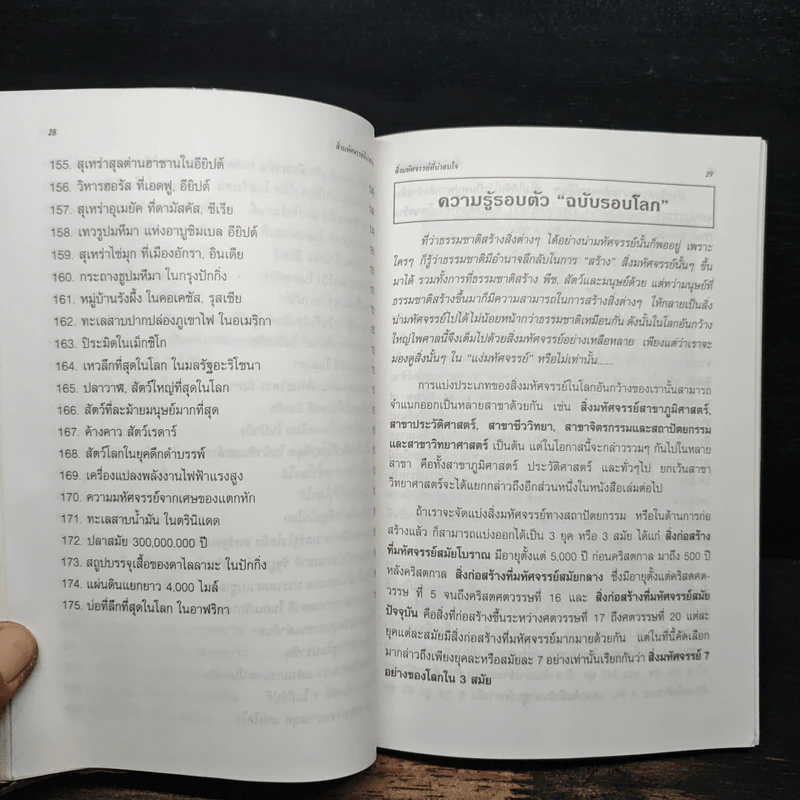 28
สิ่งมหัศจรรย์ที่น่าสนใจ
155. สุเหร่าสุลต่านฮาซานในอียิปต์
156. วิหารฮอรัส ที่เอดฟู, อียิปต์
157. สุเหร่าอุเมยัค ที่ดามัสคัส, ซีเรีย
158. เทวรูปมหึมา แห่งอาบูซิมเบล อียิปต์
159. สุเหร่าไข่มุก ที่เมืองอักรา, อินเดีย
160. กระถางธูปมหึมา ในกรุงปักกิ่ง
161. หมู่บ้านรังผึ้ง ในคอเคซัส, รุสเซีย
162. ทะเลสาบปากปล่องภูเขาไฟ ในอเมริกา
163. ปิระมิดในเม็กซิโก
164. เหวลึกที่สุดในโลก ในมลรัฐอะริโซนา
165. ปลาวาฬ, สัตว์ใหญ่ที่สุดในโลก
166. สัตว์ที่ละม้ายมนุษย์มากที่สุด
167. ค้างคาว สัตว์เรดาร์
168. สัตว์โลกในยุคดึกดำบรรพ์
169. เครื่องแปลงพลังงานไฟฟ้าแรงสูง
170. ความมหัศจรรย์จากเศษของแตกหัก
171. ทะเลสาบน้ำมัน ในตรินิแดด
172. ปลาสมัย 300,000,000 ปี
173. สถูปบรรจุเสื้อของดาไลลามะ ในปักกิ่ง
174. แผ่นดินแยกยาว 4,000 ไมล์
175. บ่อที่ลึกที่สุดในโลก ในอาฟริกา
สิ่งมหัศจรรย์ที่น่าสนใจ
29
ความรู้รอบตัว “ฉบับรอบโลก”
ที่ว่าธรรมชาติสร้างสิ่งต่างๆ ได้อย่างน่ามหัศจรรย์นั้นก็พออยู่ เพราะ
ใครๆ ก็รู้ว่าธรรมชาติมีอำนาจลึกลับในการ “สร้าง” สิ่งมหัศจรรย์นั้นๆ ขึ้น
มาได้ รวมทั้งการที่ธรรมชาติสร้าง พืช, สัตว์และมนุษย์ด้วย แต่ทว่ามนุษย์ที่
ธรรมชาติสร้างขึ้นมาก็มีความสามารถในการสร้างสิ่งต่างๆ ให้กลายเป็นสิ่ง
น่ามหัศจรรย์ไปได้ ไม่น้อยหน้ากว่าธรรมชาติเหมือนกัน ดังนั้นในโลกอันกว้าง
ใหญ่ไพศาลนี้จึงเต็มไปด้วยสิ่งมหัศจรรย์อย่างเหลือหลาย เพียงแต่ว่าเราจะ
มองดูสิ่งนั้นๆ ใน “แง่มหัศจรรย์” หรือไม่เท่านั้น......
การแบ่งประเภทของสิ่งมหัศจรรย์ในโลกอันกว้างของเรานั้นสามารถ
จำแนกออกเป็นหลายสาขาด้วยกัน เช่น สิ่งมหัศจรรย์สาขาภูมิศาสตร์,
สาขาประวัติศาสตร์, สาขาชีววิทยา, สาขาจิตรกรรมและสถาปัตยกรรม
และสาขาวิทยาศาสตร์ เป็นต้น แต่ในโอกาสนี้จะกล่าวรวมๆ กันไปในหลาย
สาขา คือทั้งสาขาภูมิศาสตร์ ประวัติศาสตร์ และทั่วๆไป ยกเว้นสาขา
วิทยาศาสตร์จะได้แยกกล่าวถึงอีกส่วนหนึ่งในหนังสือเล่มต่อไป
ถ้าเราจะจัดแบ่งสิ่งมหัศจรรย์ทางสถาปัตยกรรม หรือในด้านการก่อ
สร้างแล้ว ก็สามารถแบ่งออกได้เป็น 3 ยุค หรือ 3 สมัย ได้แก่ สิ่งก่อสร้าง
ที่มหัศจรรย์สมัยโบราณ มีอายุตั้งแต่ 5,000 ปี ก่อนคริสตกาล มาถึง 500 ปี
หลังคริสตกาล สิ่งก่อสร้างที่มหัศจรรย์สมัยกลาง ซึ่งมีอายุตั้งแต่คริสตศต-
วรรษ ที่ 5 จนถึงคริสตศตวรรษที่ 16 และ สิ่งก่อสร้างที่มหัศจรรย์สมัย
ปัจจุบัน คือสิ่งที่ก่อสร้างขึ้นระหว่างศตวรรษที่ 17 ถึงศตวรรษที่ 20 แต่ละ
ยุคแต่ละสมัยมีสิ่งก่อสร้างที่มหัศจรรย์มากมายด้วยกัน แต่ในที่นี้คัดเลือก
มากล่าวถึงเพียงยุคละหรือสมัยละ 7 อย่างเท่านั้นเรียกกันว่า สิ่งมหัศจรรย์ 7
อย่างของโลกใน 3 สมัย